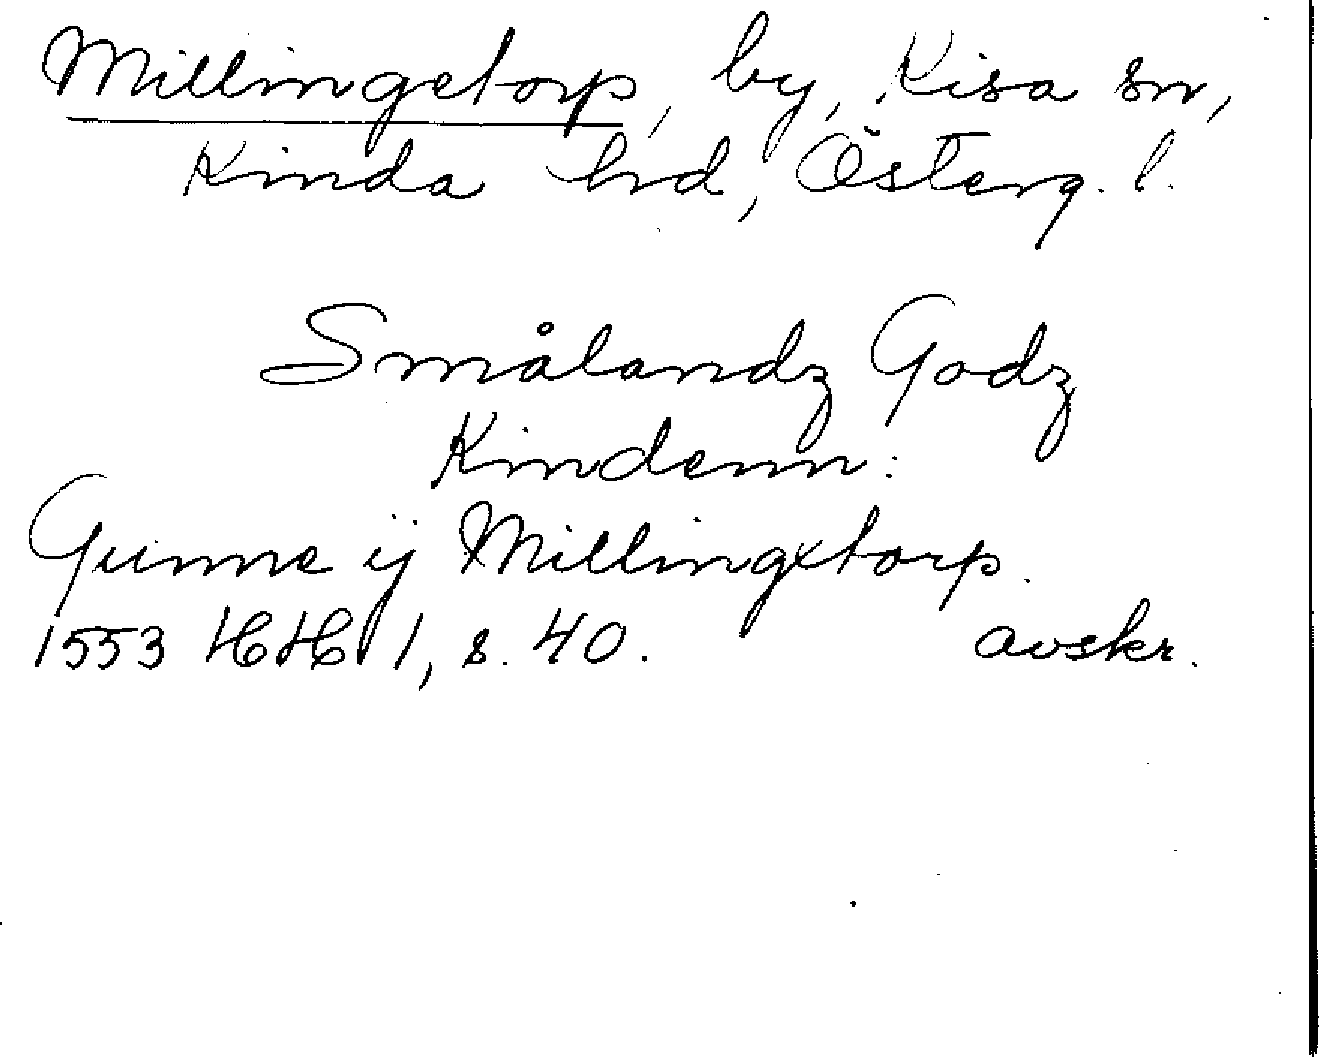 Millingetorp, by, Kisa sn,
Kinda hd, Österg. l.
Smålandz Godz
Kindenn:
Gunne ij Millingxtorp.
1553 HH 1, s. 40. avskr.